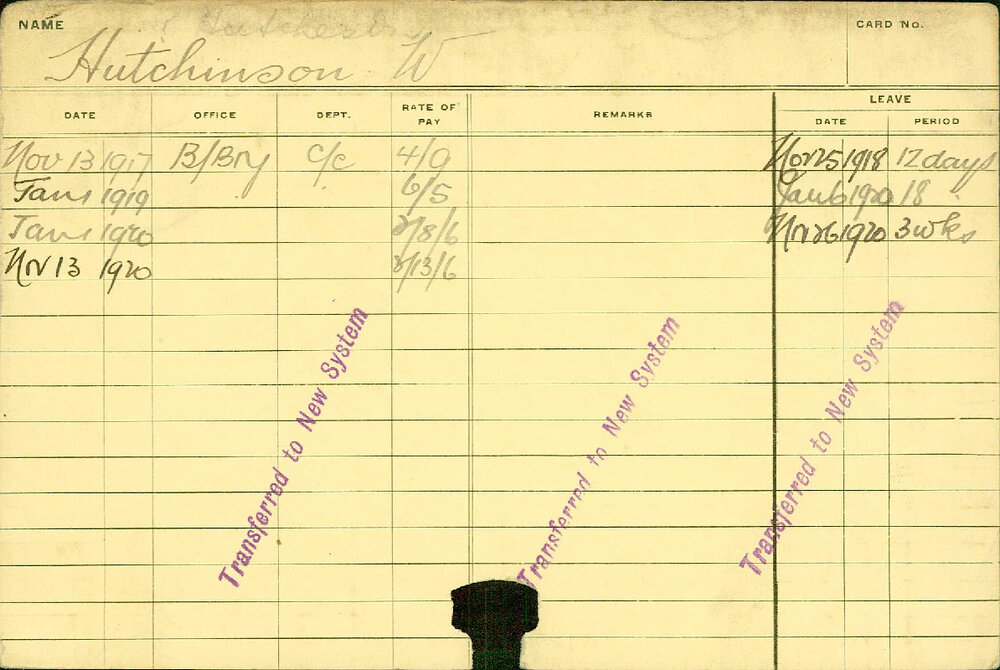 NAME
CARD No.
Hutchinson W
DATE OFFICE DEPT. RATE OF PAY REMARKS LEAVE
DATE PERIOD
Nov 13 1917 B/Bry C/c 4/9 Nov 25 1918 12 days
Jan 1 1919 6/5 Jan 6 1920 18
Jan 1 1920 2/8/6 Nv 26 1920 3 wks
Nv 13 1920 2/13/6
Transferred to New System
Transferred to New System
Transferred to New System